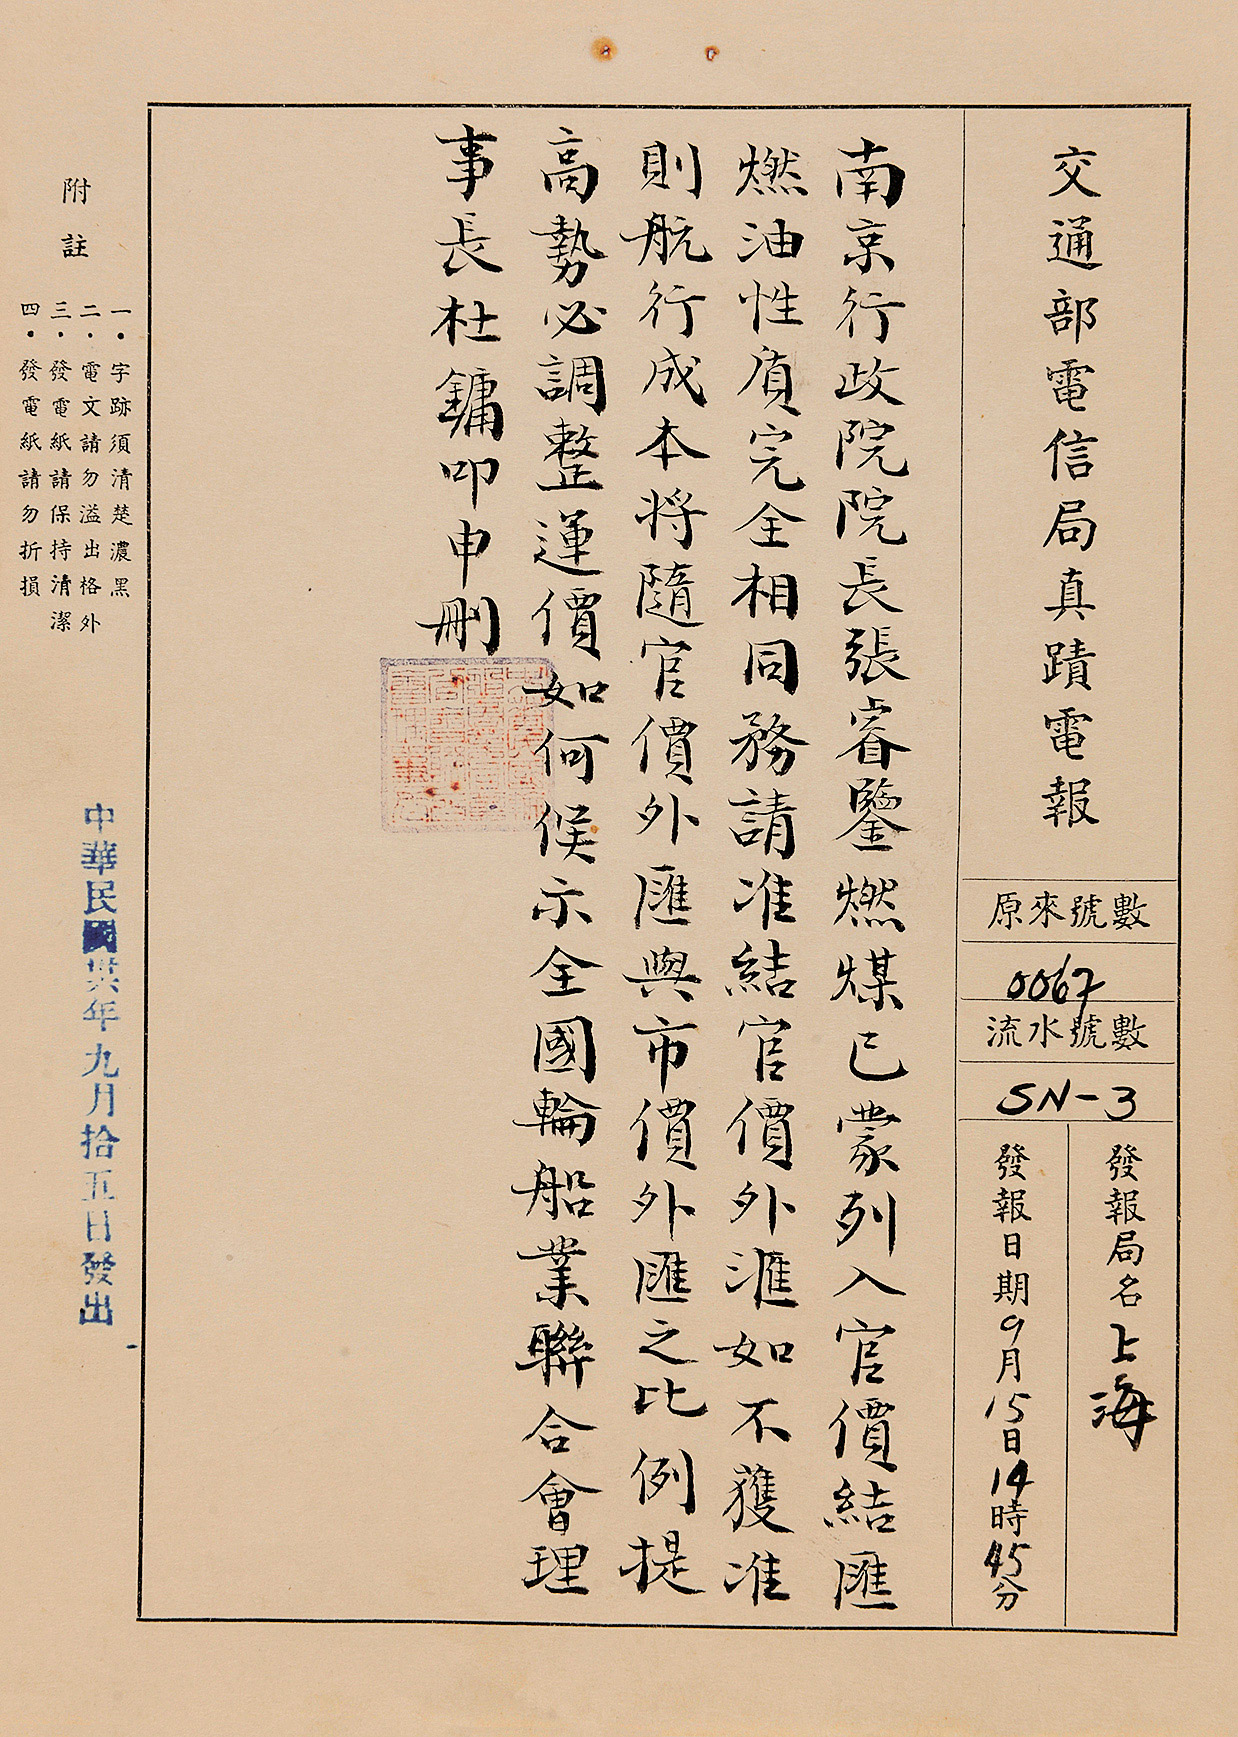 交通部電信局真蹟電報
原來號數
0067
流水號數
SN-3
發報局名上海
發報日期9月15日14時45分
南京行政院院長張睿鑒燃煤已蒙列入官價結匯
燃油性質完全相同務請准結官價外滙如不獲准
則航行成本將隨官價外匯與市價外匯之比例提
高勢必調整運價如何候示全國輪船業聯合會理
事長杜鏞叩申刪
附註
一•字跡須清楚濃黑
二•電文請勿溢出格外
三•發電紙請保持清潔
四•發電紙請勿折損
中華民國卅六年九月拾五日發出